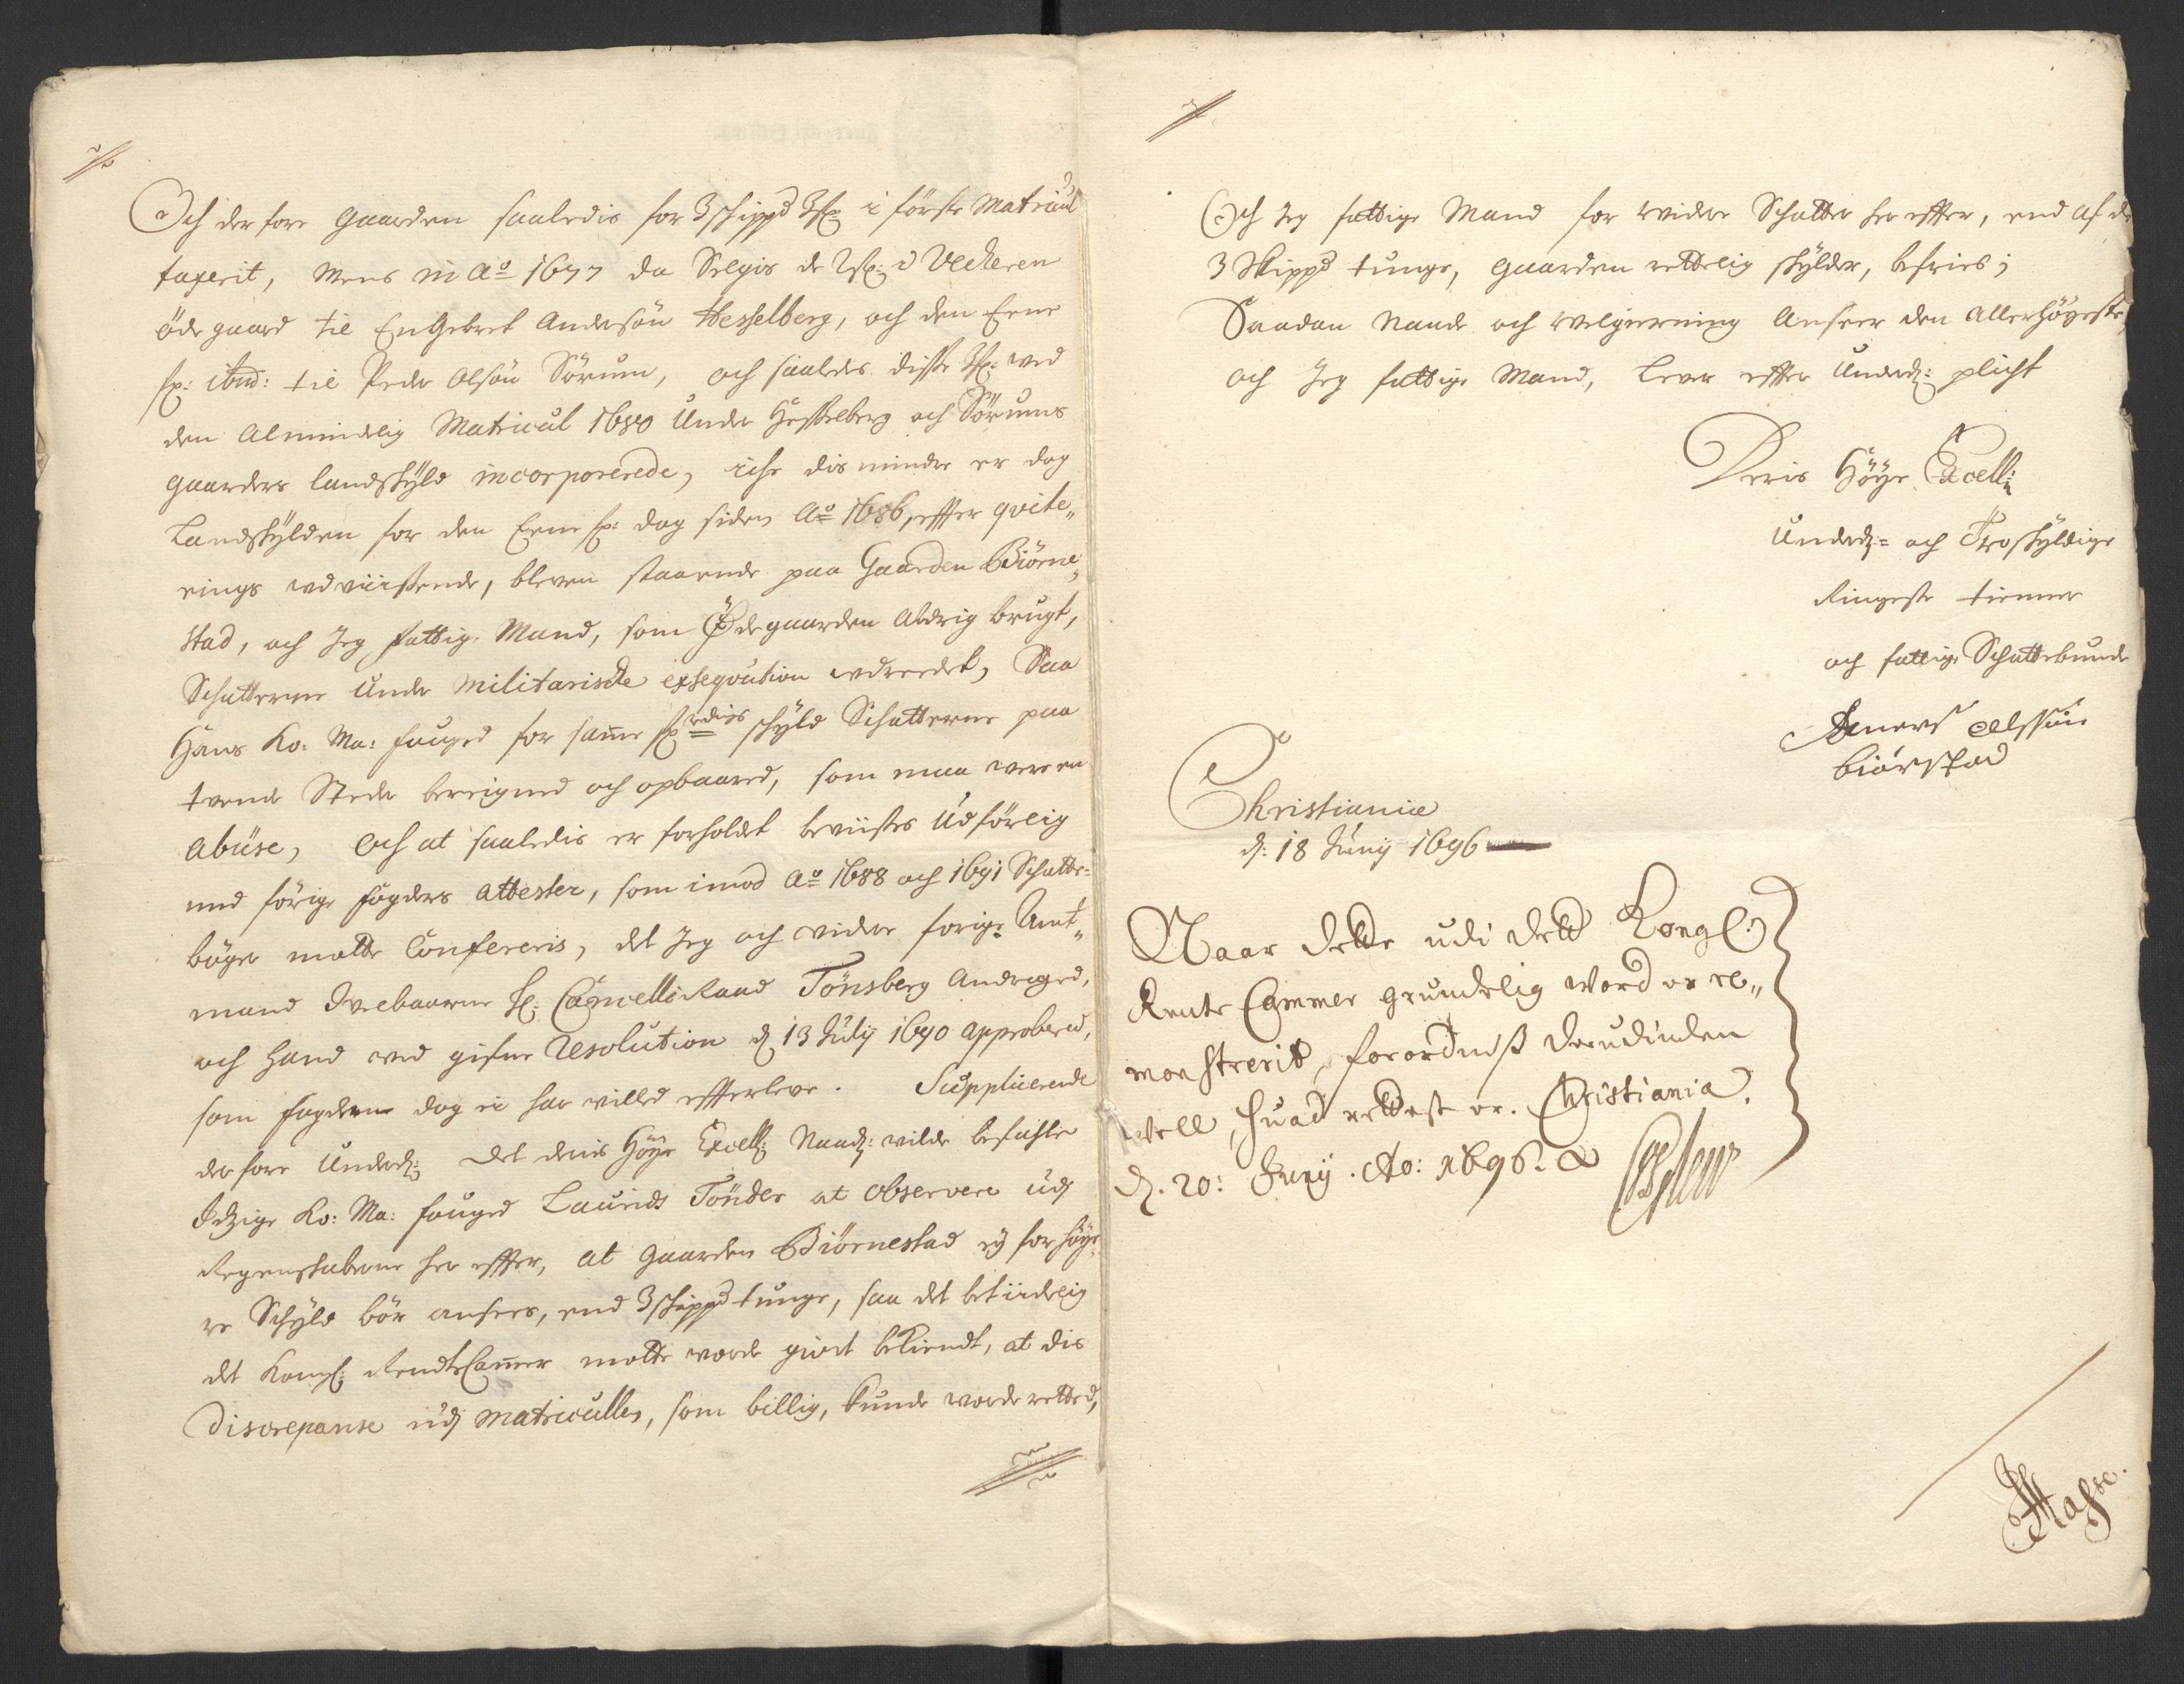 Och der fore Gaarden saaledis for 3 schippd 3 sp i förste Matricul
taxerit, Mens in Ao 1677 da Selgis de 2 sp: i Veckeren
öde gaard til Engebret Andersön Hesselberg, och den Eene
sp: ibid: til Peder Olsön Sörum, och saaledis disse 3 sp: ved
den Almindelig Matricul 1680 Under Hesselberg och Sörums
gaarders landskyld incorporerede, iche dis minder er dog
Landskylden for den Eene sp: dog siden Ao 1686, effter qvite„
rings udviisende, bleven staaende paa Gaarden Biörne„
stad, och Jeg fattig Mand, som Ödegaarden Aldrig brugt,
Schatterne Under Militarische exseqvution udreedet, Saa
Hans Ko: Ma: fouged for samme skyld Schatterne paa
tvende Steder bereigned och opbaared, som maa vere en
Abüse, Och at saaledis er forholdet beviises Udförlig
med förige fogders Attester, som imod Ao 1688 och 1691 Schatte-
böger motte Confereris, det Jeg och vider forige Amt„
mand Velbaarne Hr: Cancelliraad Tönsberg Andraged,
och hand ved gifne Resolution d 13 Julij 1690 Approbered,
som fogderne dog ei har villed effterleve. Supplicerende
der fore Underd: det deris Höye Excell: Naad: vilde befahle
Itzige Ko: Ma: fouged Laurids Tönder at observere udj
Regenskaberne her effter, at Gaarden Biörnestad ej for höye„
re Schyld bör ansees, end 3 schippd tunge, saa det betiidelig
det Kongl: RendteCammer motte vorde giort bekiendt, at dis
Discrepanse udj Matriculler, som billig, kunde vorde retted,

Och Jeg fattige Mand for vider Schatter her effter, end af de
3 Skippd tunge, gaarden rettelig skylder, befries;
Saadan Naade och Velgierning Anseer den Allerhöyeste,
och Jeg fattige Mand, Lever effter Underd: plicht
Deris Höye Excell:
Underd:= och Troskyldige
Ringeste tienner
och fattige Schattebunde
Olssön
Biörstad
Christianiæ
d: 18 Junij 1696
Naar dette udi dett Kongl:
Rente Cammer grundelig Vord er re„
monstrerit, forordnis derudinden
vell, huad rettest er. Christiania.
d. 20: Junij. Ao: 1696.